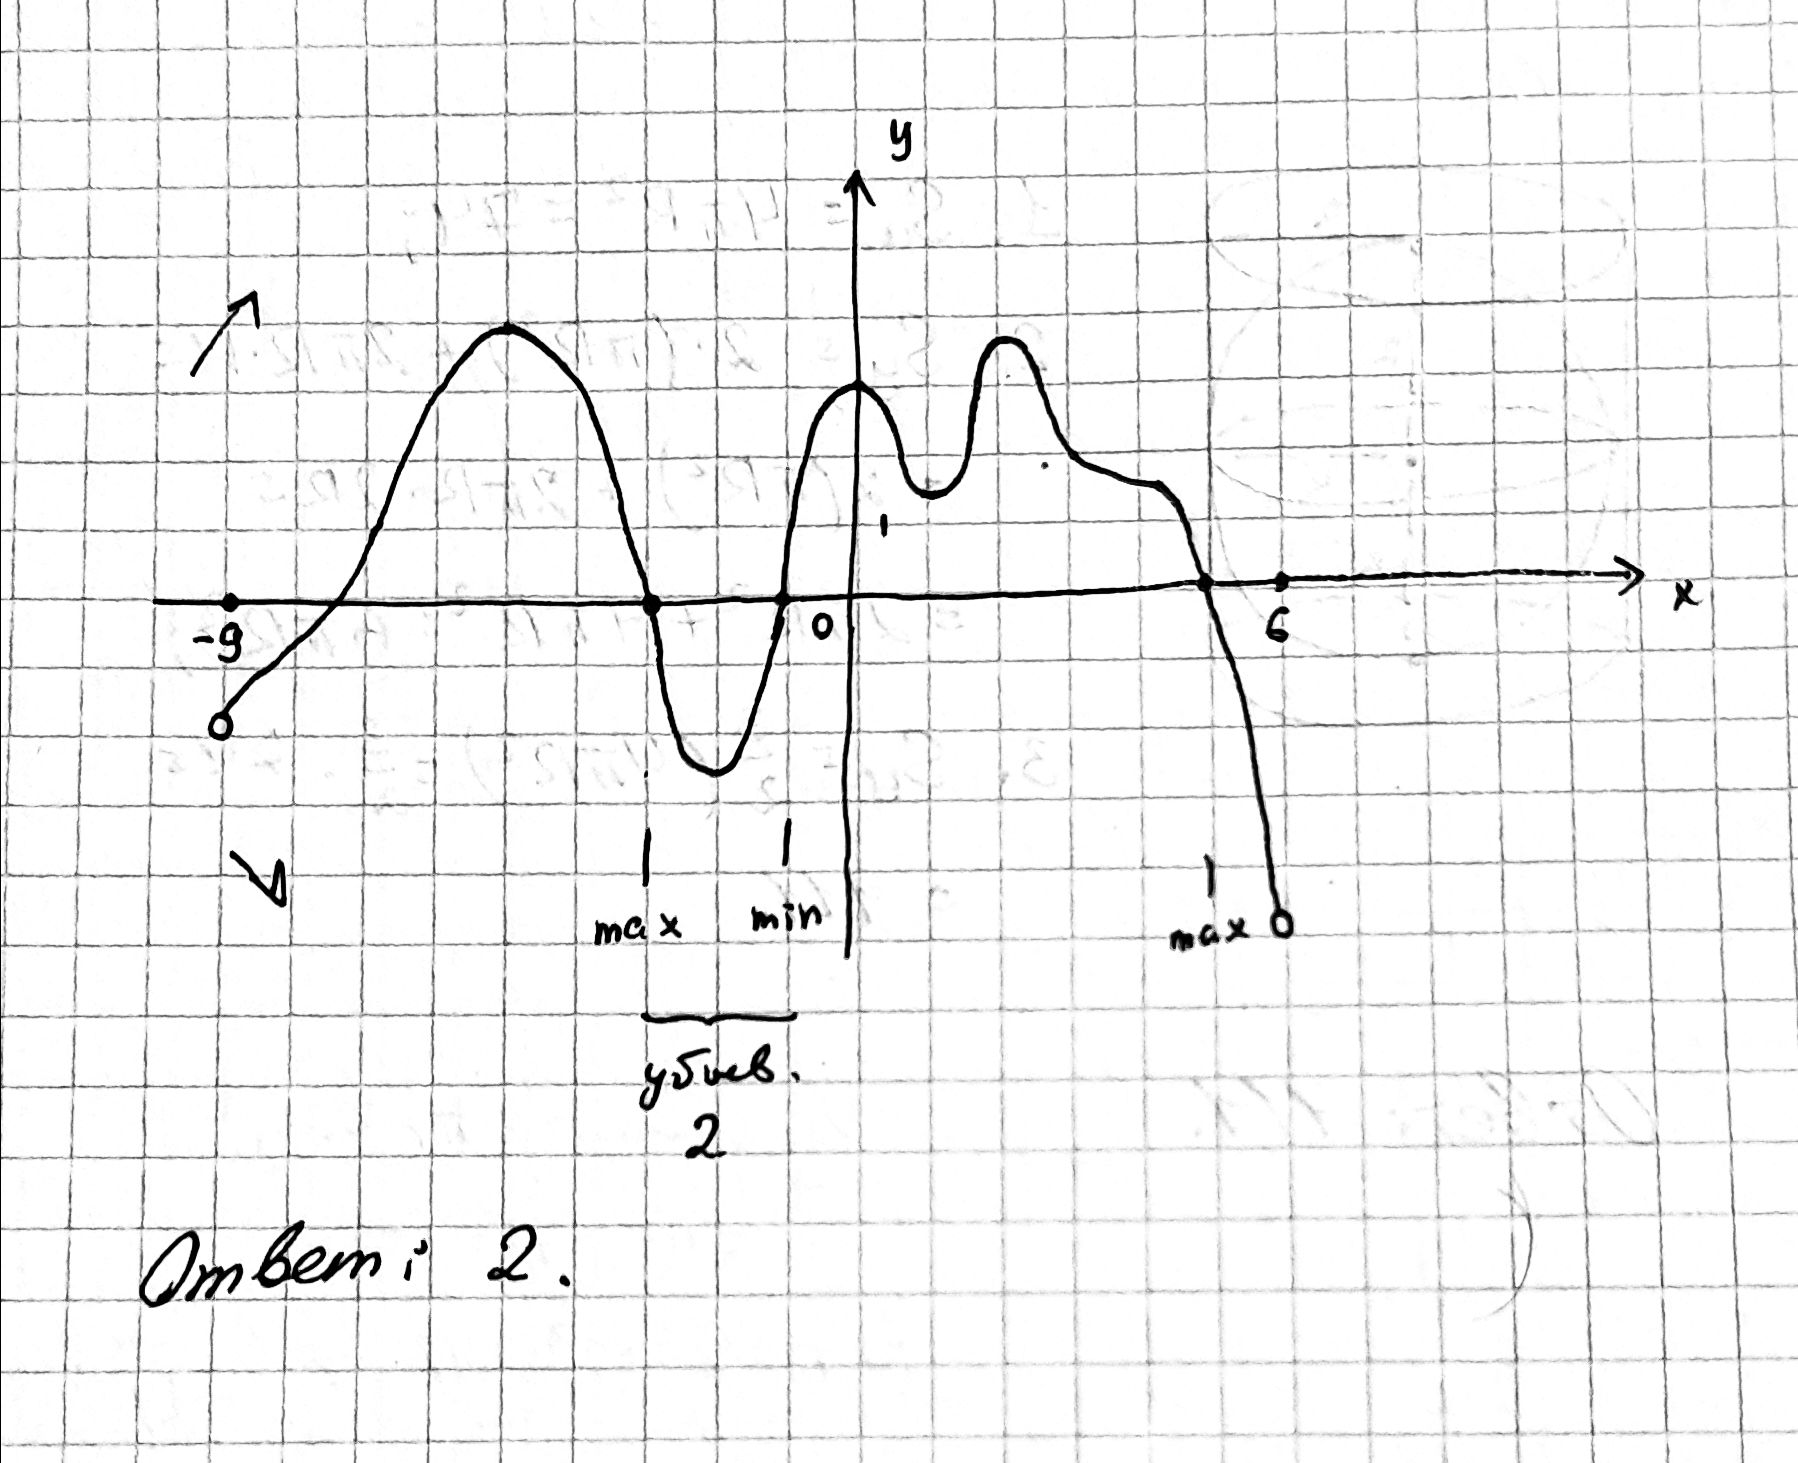 y
1
-9 0 6 x
max min max
убыв.
2
Ответ: 2.